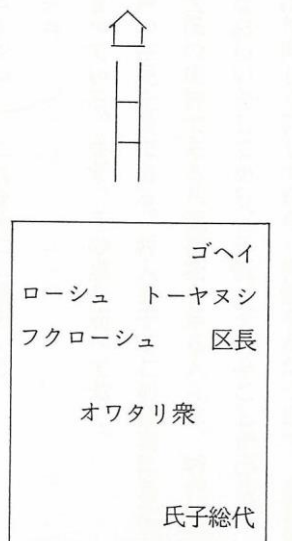 ゴヘイ
ローシュ トーヤヌシ
フクローシュ 区長
オワタリ衆
氏子総代